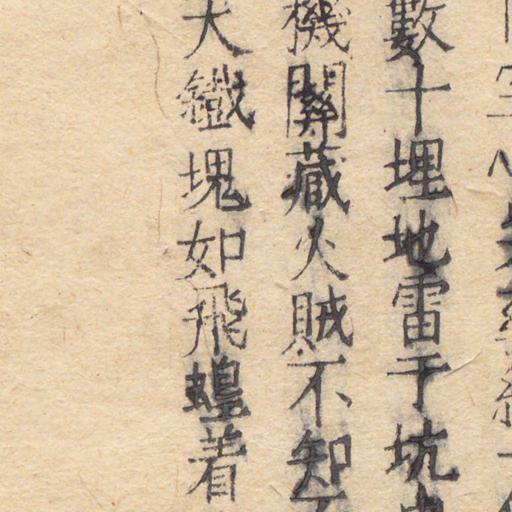 數十埋地雷于坑
機關藏火賊不知
大鐵塊如飛蝗着